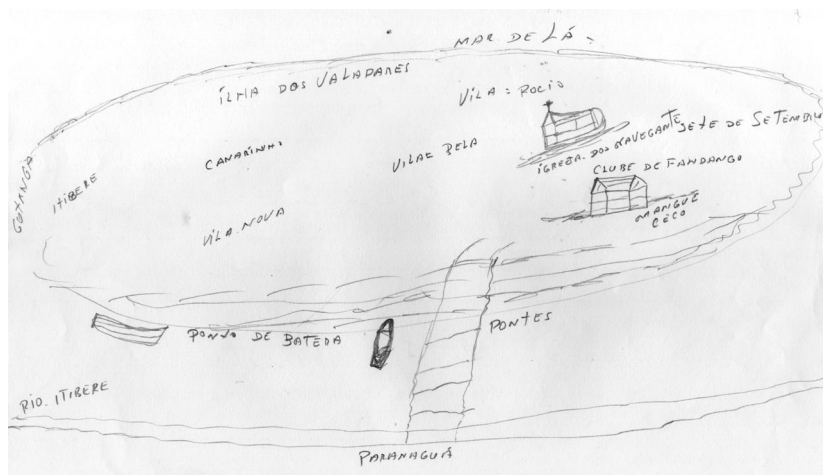 MAR DE LÁ
ILHA DOS VALADARES
VILA: ROCIO
SETE DE SETEMBRO
IGREJA DOS NAVEGANTE
CANARINHO
VILAE BELA
CLUBE DE FANDANGO
ITIBERE
VILA NOVA
MANGUE
CECO
PONTES
PONTO DE BATERA
RIO ITIBERE
PARANAGUÁ